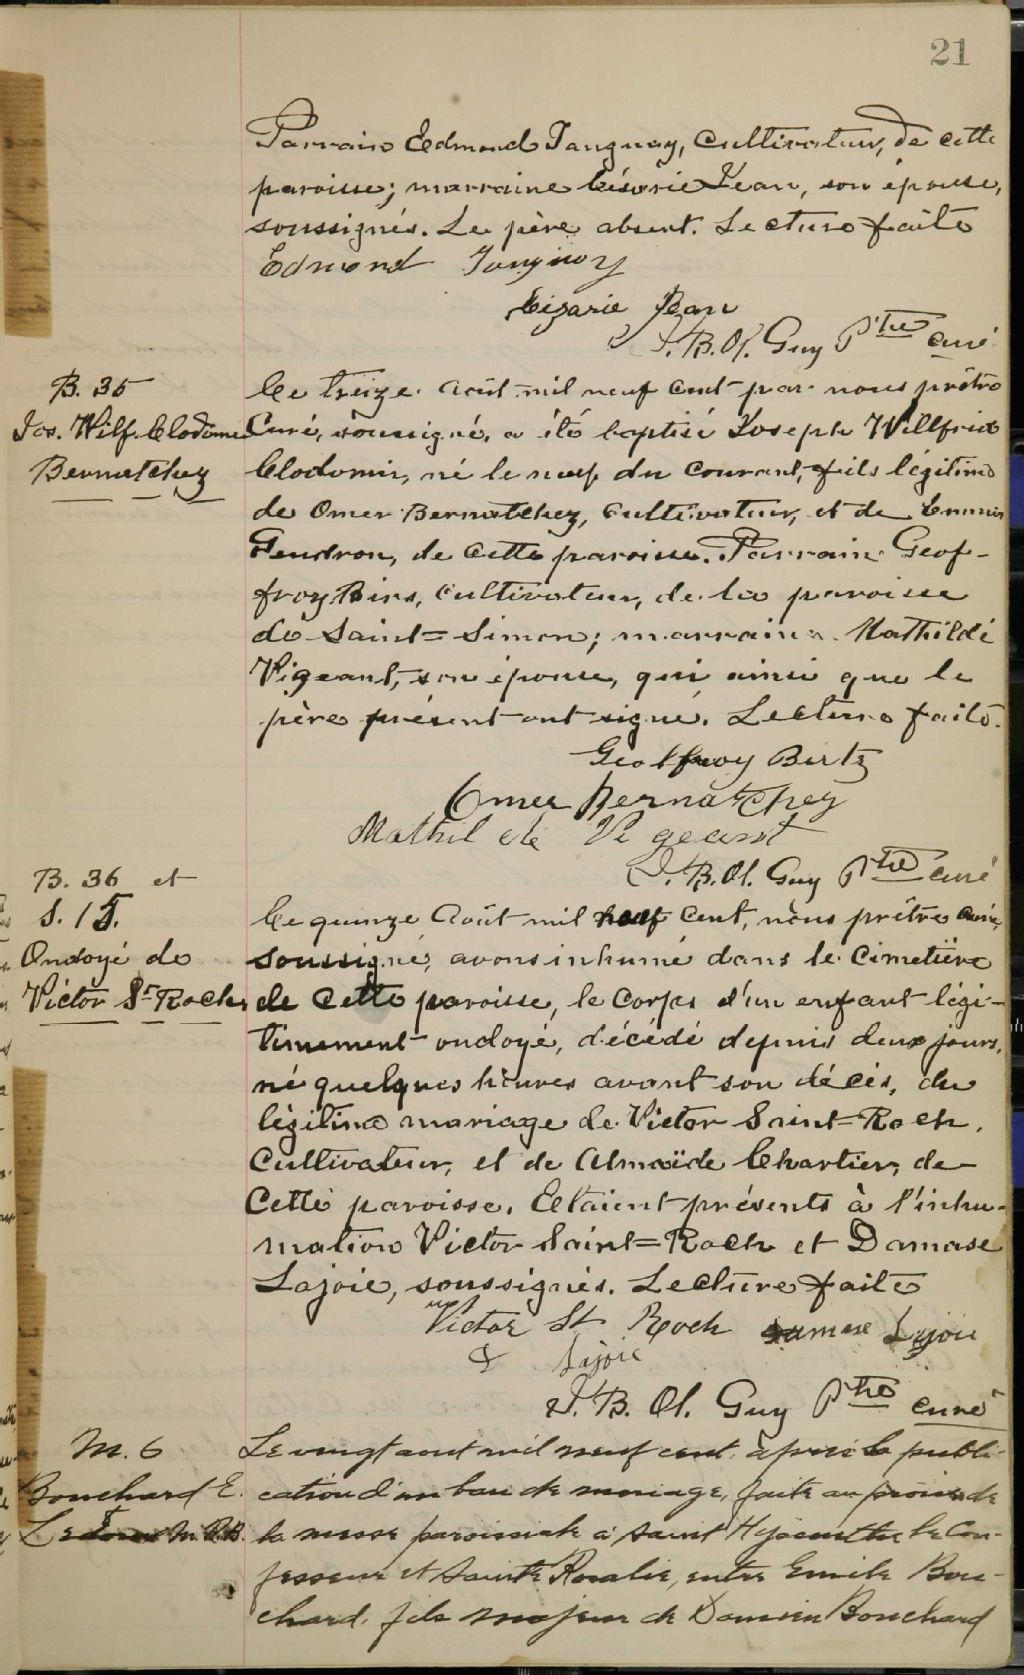 21
Parrain Edmond Tanguay, Cultivateur, de cette
paroisse; marraine Césarie Jean, son épouse,
soussignés. Le père absent. Lecture faite
Edmond Tanguay
Césarie Jean
J. B. Ol. Guy Ptre curé
B. 35
Jos. Wilf. Clodomir
Bernatchez
Ce treize Août mil neuf cent par nous prêtre
Curé, soussigné, a été baptisé Joseph Willfrid
Clodomir, né le neuf du courant, fils légitime
de Omer Bernatchez, Cultivateur, et de
Gendron, de cette paroisse. Parrain Geof-
froy Birs, Cultivateur, de la paroisse
de Saint=Simon; marraine Mathilde
Vigeant, son épouse, qui ainsi que le
père présent ont signé. Lecture faite.
Geoffroy Birtz
Omer Bernatchez
Mathilde Vigeant
J. B. Ol. Guy Ptre curé
B. 36 et
S. 15.
Ondoyé de
Victor St-Roch
Ce quinze Août mil neuf Cent, nous prêtre Curé,
soussigné, avons inhumé dans le Cimetière
de Cette paroisse, le Corps d'un enfant légi-
timement ondoyé, décédé depuis deux jours,
né quelques heures avant son décès, du
légitime mariage de Victor Saint=Roch,
Cultivateur, et de Almaïde Chartier, de
Cette paroisse. Etaient présents à l'inhu-
mation Victor Saint=Roch et Damase
Lajoie, soussignés. Lecture faite
Victor St Roch Damase Lajoie
Lajoie
J. B. Ol. Guy Ptre curé
M. 6
Bouchard E.
Le vingt aout mil neuf cent, après la publi-
cation d'un ban de mariage, faite au prône de
la messe paroissiale à Saint Hyacinthe le Con-
fesseur et Sainte Rosalie, entre Emile Bou-
chard, fils majeur de Damien Bouchard